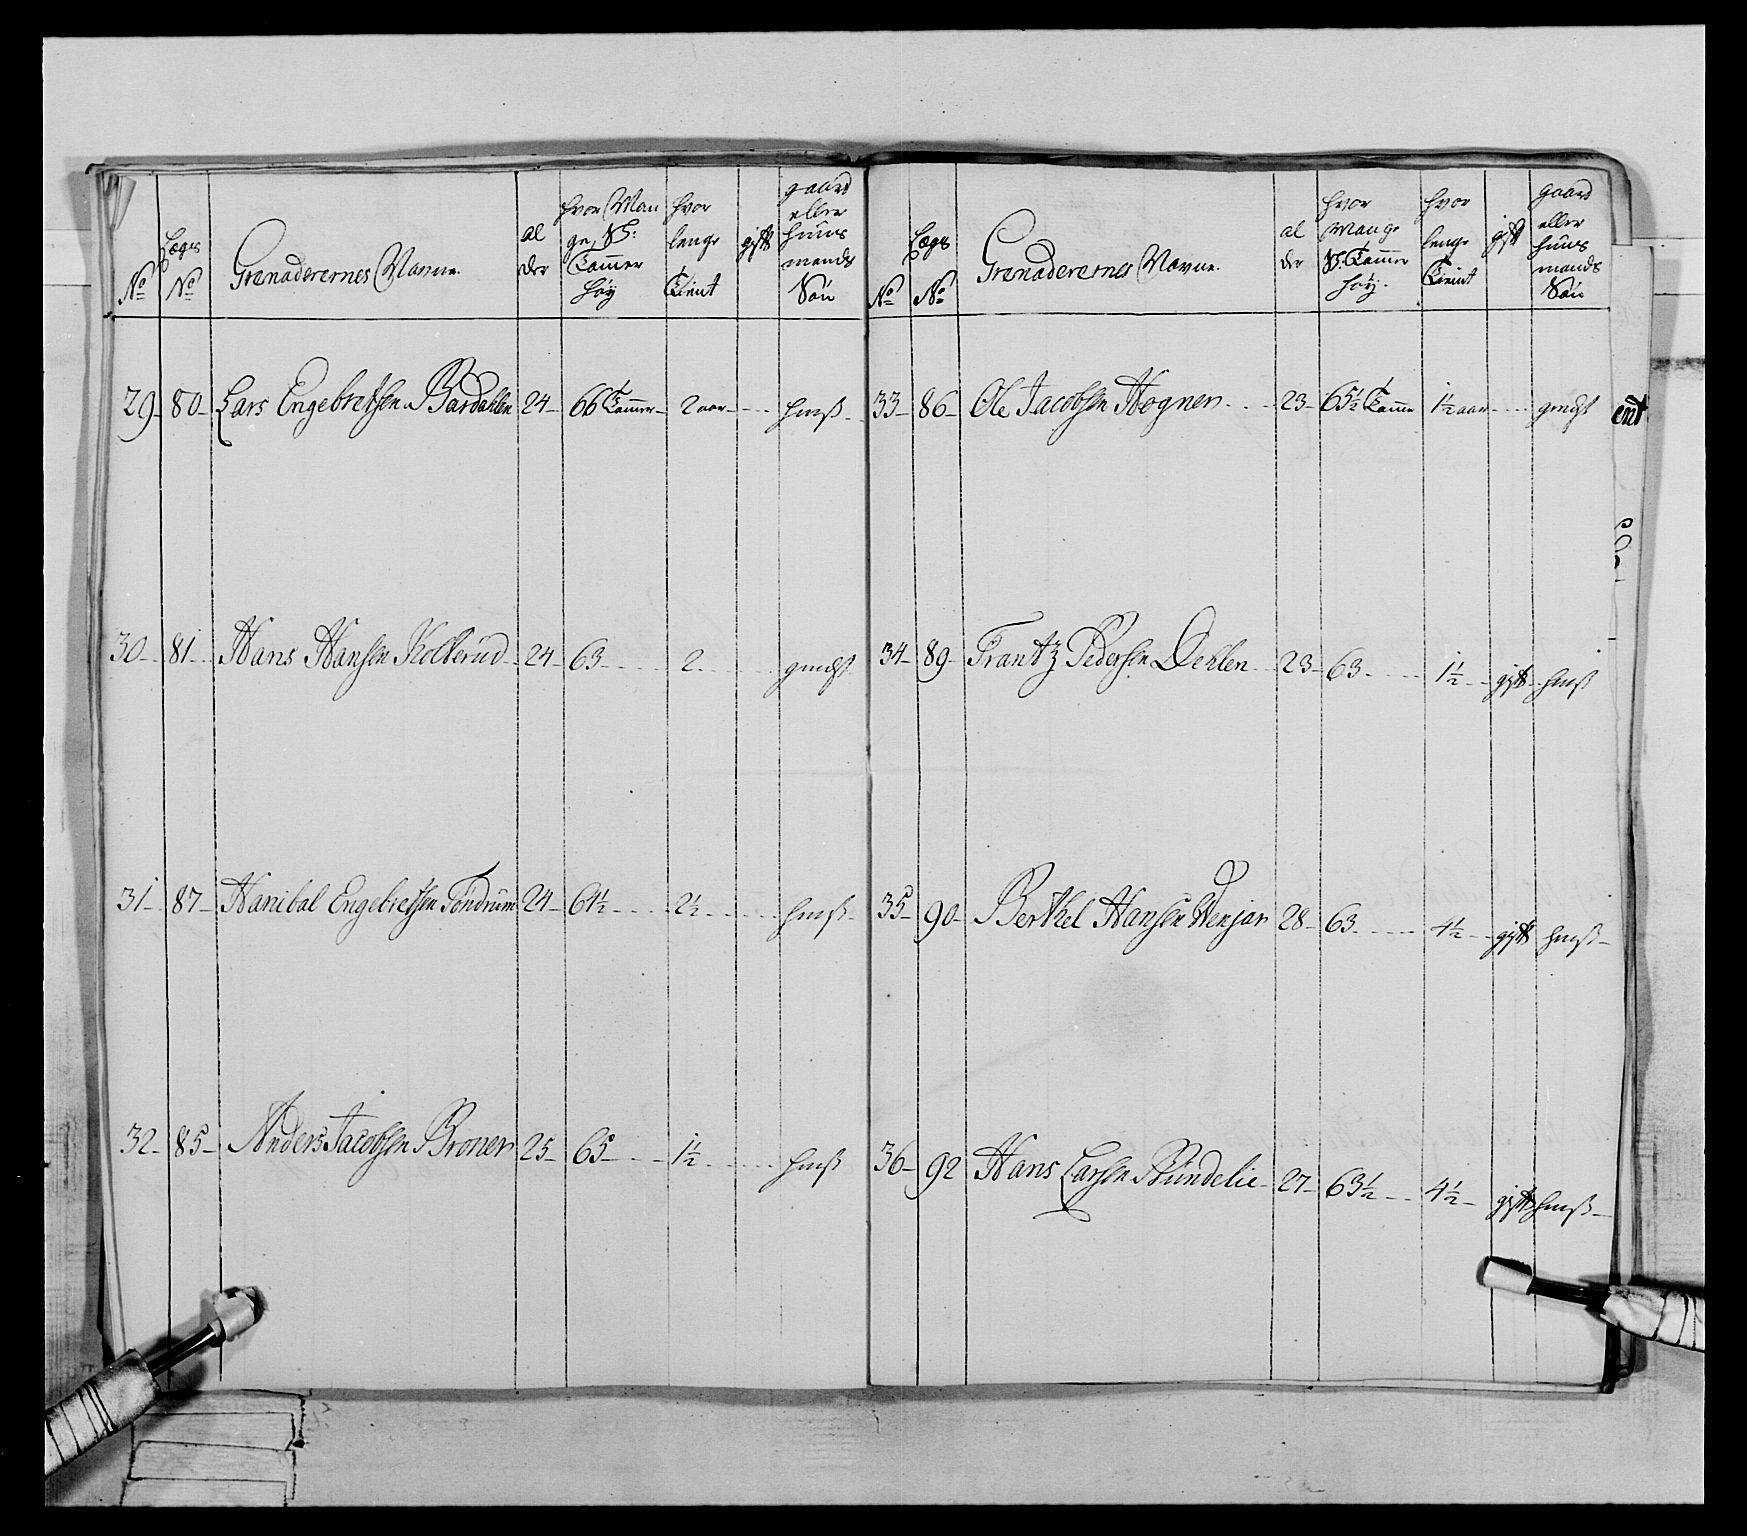 No
Lægs No
Grenaderernes Navne
al der
hvor Man ge S: Tommer høy
hvor lenge Tient
gift
gaard eller huus mands Søn
29 80 Lars Engebretsen Bardahlen 24 66 Tommer 2 aar hmß
30 81 Hans Hansen Kolkerud 24 63 2 gmdß
31 87 Hanibal Engebretsen Tøndrum 24 64½ 2½ hmß
32 85 Anders Jacobsen Broner 25 65 1½ hmß
No
Lægs No
Grenaderernes Navne
al der
hvor Mange S. Tommer høy
hvor lenge Tient
gift
gaard eller huus mands Søn
33 86 Ole Jacobsen Hogner 23 65½ Tomme 1½ aar gmdß
34 89 Frantz Pedersen Dehlen 23 63 1½ gift hmß
35 90 Berthel Hansen Wenjar 28 63 4½ gift hmß
36 92 Hans Larsen Bundelie 27 63½ 4½ gift hmß
ent